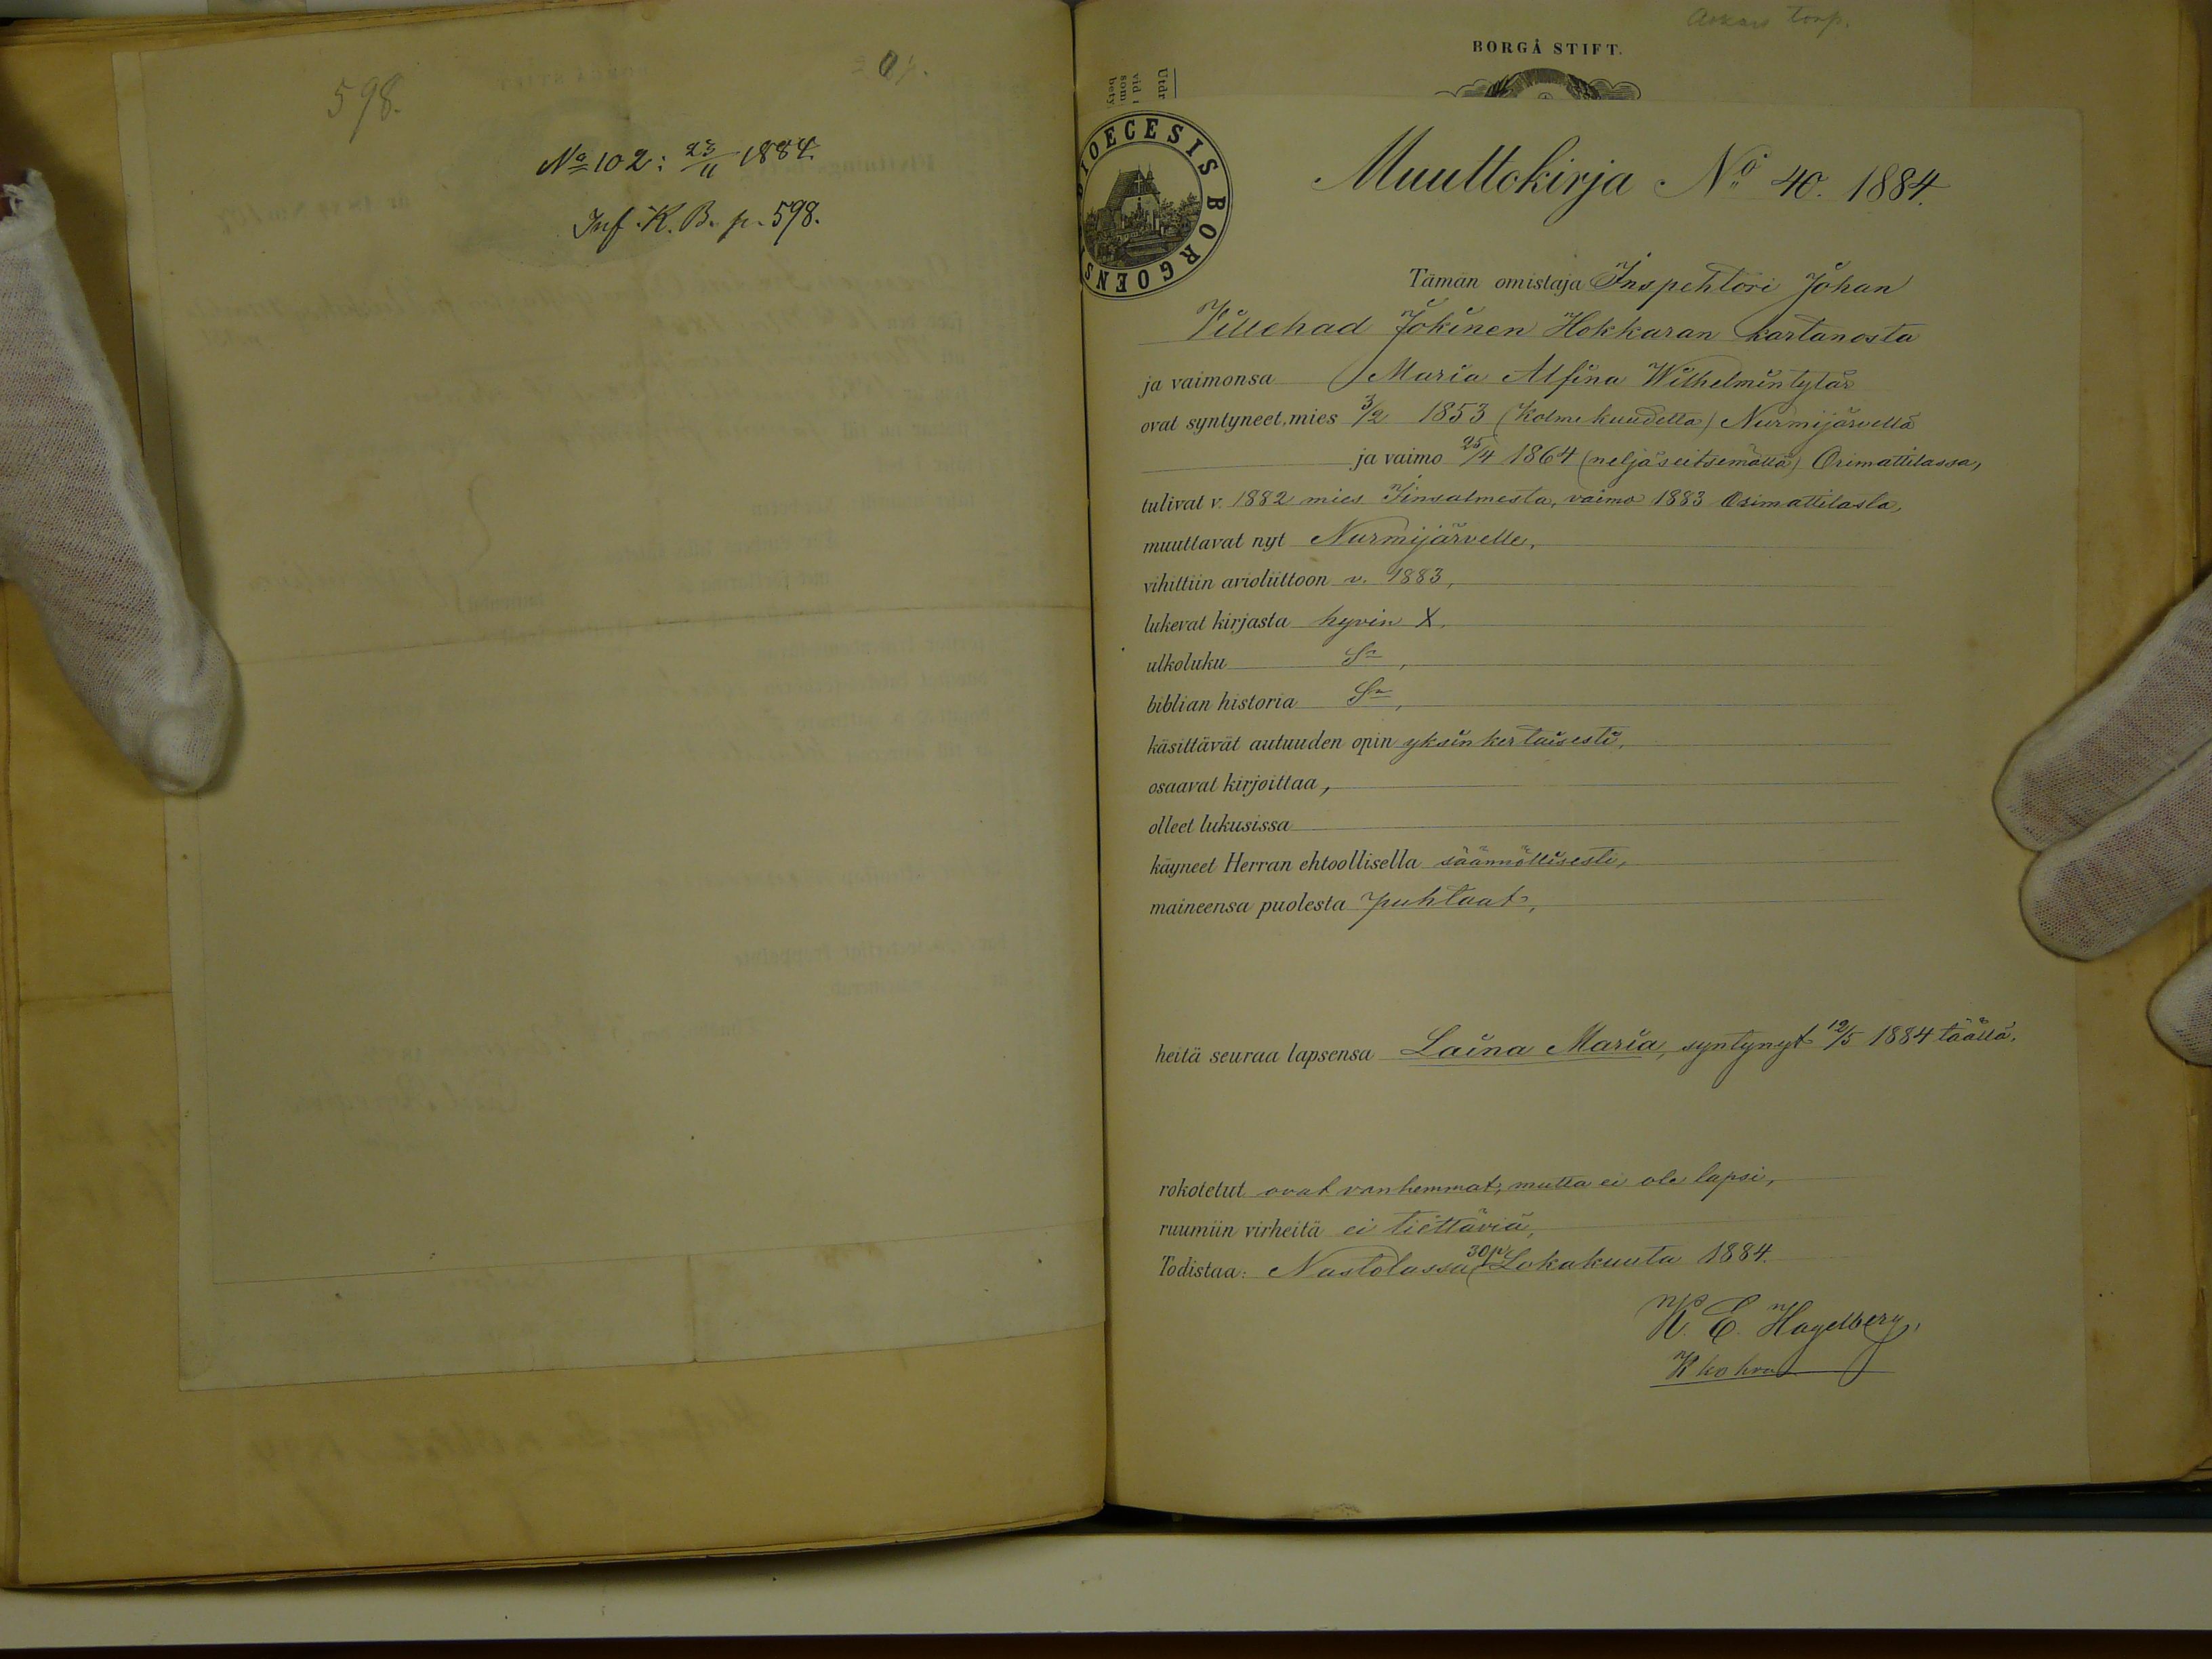 598.
No 102: 23/11 1884.
Inf. K. B. p. 598.
torp.
BORGÅ STIFT.
Utdr
vid
som
bety
DIOECESIS BORGOENS
Muuttokirja No 40. 1884.
Tämän omistaja Inspehtori Johan
Villehad Jokinen Hokkaran kartanosta
ja vaimonsa Maria Alfina Wilhelmintytär
ovat syntyneet, mies 3/2 1853 (kolme kuudetta) Nurmijärvellä
ja vaimo 25/4 1864 (neljä seitsemättä) Orimattilassa,
tulivat v. 1882 mies Iinsalmesta, vaimo 1883 Orimattilasta,
muuttavat nyt Nurmijärvelle,
vihittiin avioliittoon v. 1883,
lukevat kirjasta hyvin X,
ulkoluku Sn,
biblian historia Sn,
käsittävät autuuden opin yksinkertaisesti,
osaavat kirjoittaa,
olleet lukusissa
käyneet Herran ehtoollisella säännöllisesti,
maineensa puolesta puhtaat,
heitä seuraa lapsensa Laina Maria, syntynyt 12/5 1884 täällä.
rokotetut ovat vanhemmat, mutta ei ole lapsi,
ruumiin virheitä ei tiettäviä,
Todistaa: Nastolassa 30 p. Lokakuuta 1884.
K. E. Hagelberg,